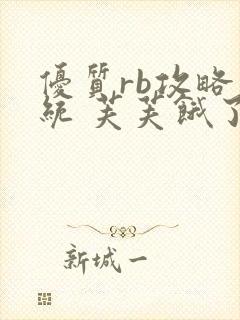 優質rb攻略
統 芙芙餓了
新城一